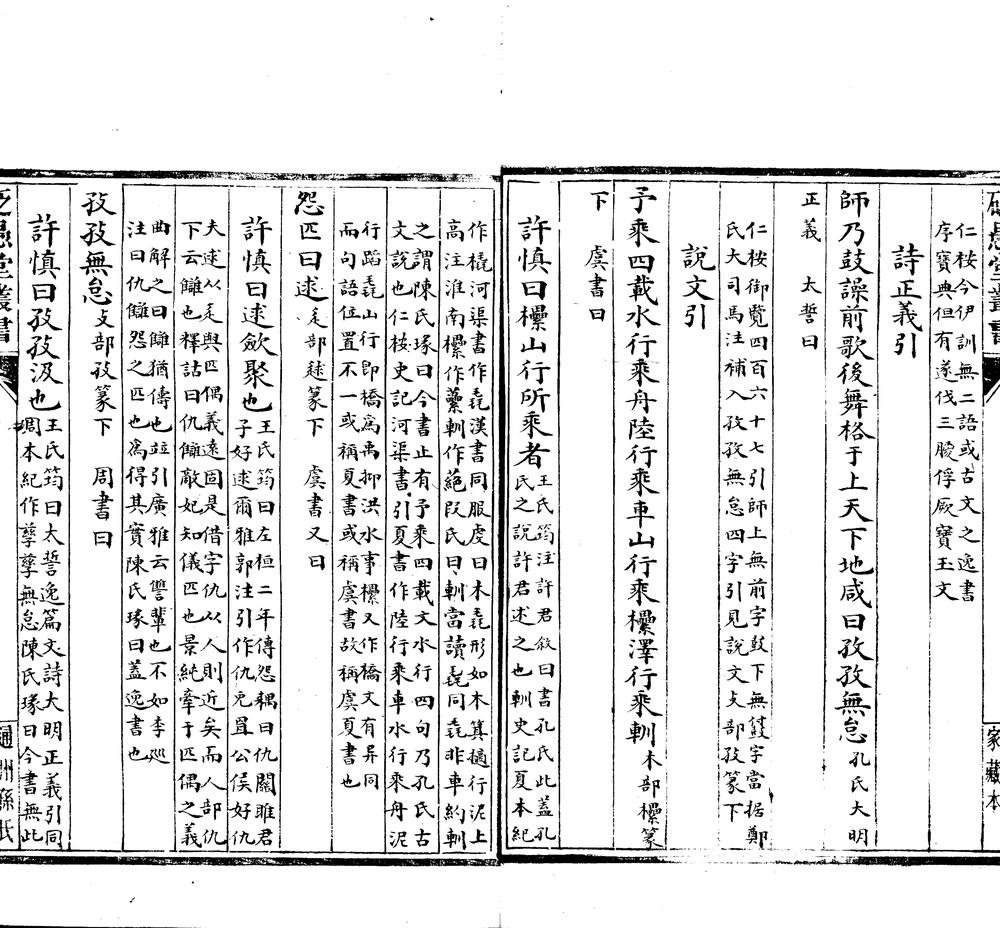 砭愚堂叢書
家藏本
仁桉今伊訓無二語或古文之逸書
序寶典但有遂伐三朡俘厥寶玉文
詩正義引
師乃鼓譟前歌後舞格于上天下地咸曰孜孜無怠孔氏大明
正義 太誓曰
仁桉御覽四百六十七引師上無前字鼓下無鼓字當据鄭
氏大司馬注補入孜孜無怠四字引見說文攴部孜篆下
說文引
予乘四載水行乘舟陸行乘車山行乘欙澤行乘䡅木部欙篆
下 虞書曰
許慎曰欙山行所乘者王氏筠注許君敘曰書孔氏此蓋孔
氏之說許君述之也䡅史記夏本紀
作橇河渠書作毳漢書同服虔曰木毳形如木箕擿行泥上
高注淮南欙作蔂䡅作蕝段氏曰䡅當讀毳同毳非車約䡅
之謂陳氏瑑曰今書止有予乘四載文水行四句乃孔氏古
文說也仁桉史記河渠書引夏書作陸行乘車水行乘舟泥
行蹈毳山行即橋爲禹抑洪水事欙又作橋文有異同
而句語位置不一或稱夏書或稱虞書故稱虞夏書也
怨匹曰逑辵部逑篆下 虞書又曰
許慎曰逑斂聚也王氏筠曰左桓二年傳怨耦曰仇關雎君
子好逑爾雅郭注引作仇兔罝公侯好仇
夫逑从辵與匹偶義遠固是借字仇从人則近矣而人部仇
下云讎也釋詁曰仇讎敵妃知儀匹也景純牽于匹偶之義
曲解之曰讎猶儔也竝引廣雅云讐輩也不如李巡
注曰仇讎怨之匹也爲得其實陳氏瑑曰蓋逸書也
孜孜無怠攴部孜篆下 周書曰
許慎曰孜孜汲也王氏筠曰太誓逸篇文詩大明正義引同
周本紀作孳孳無怠陳氏瑑曰今書無此
砭愚堂叢書
通州孫氏